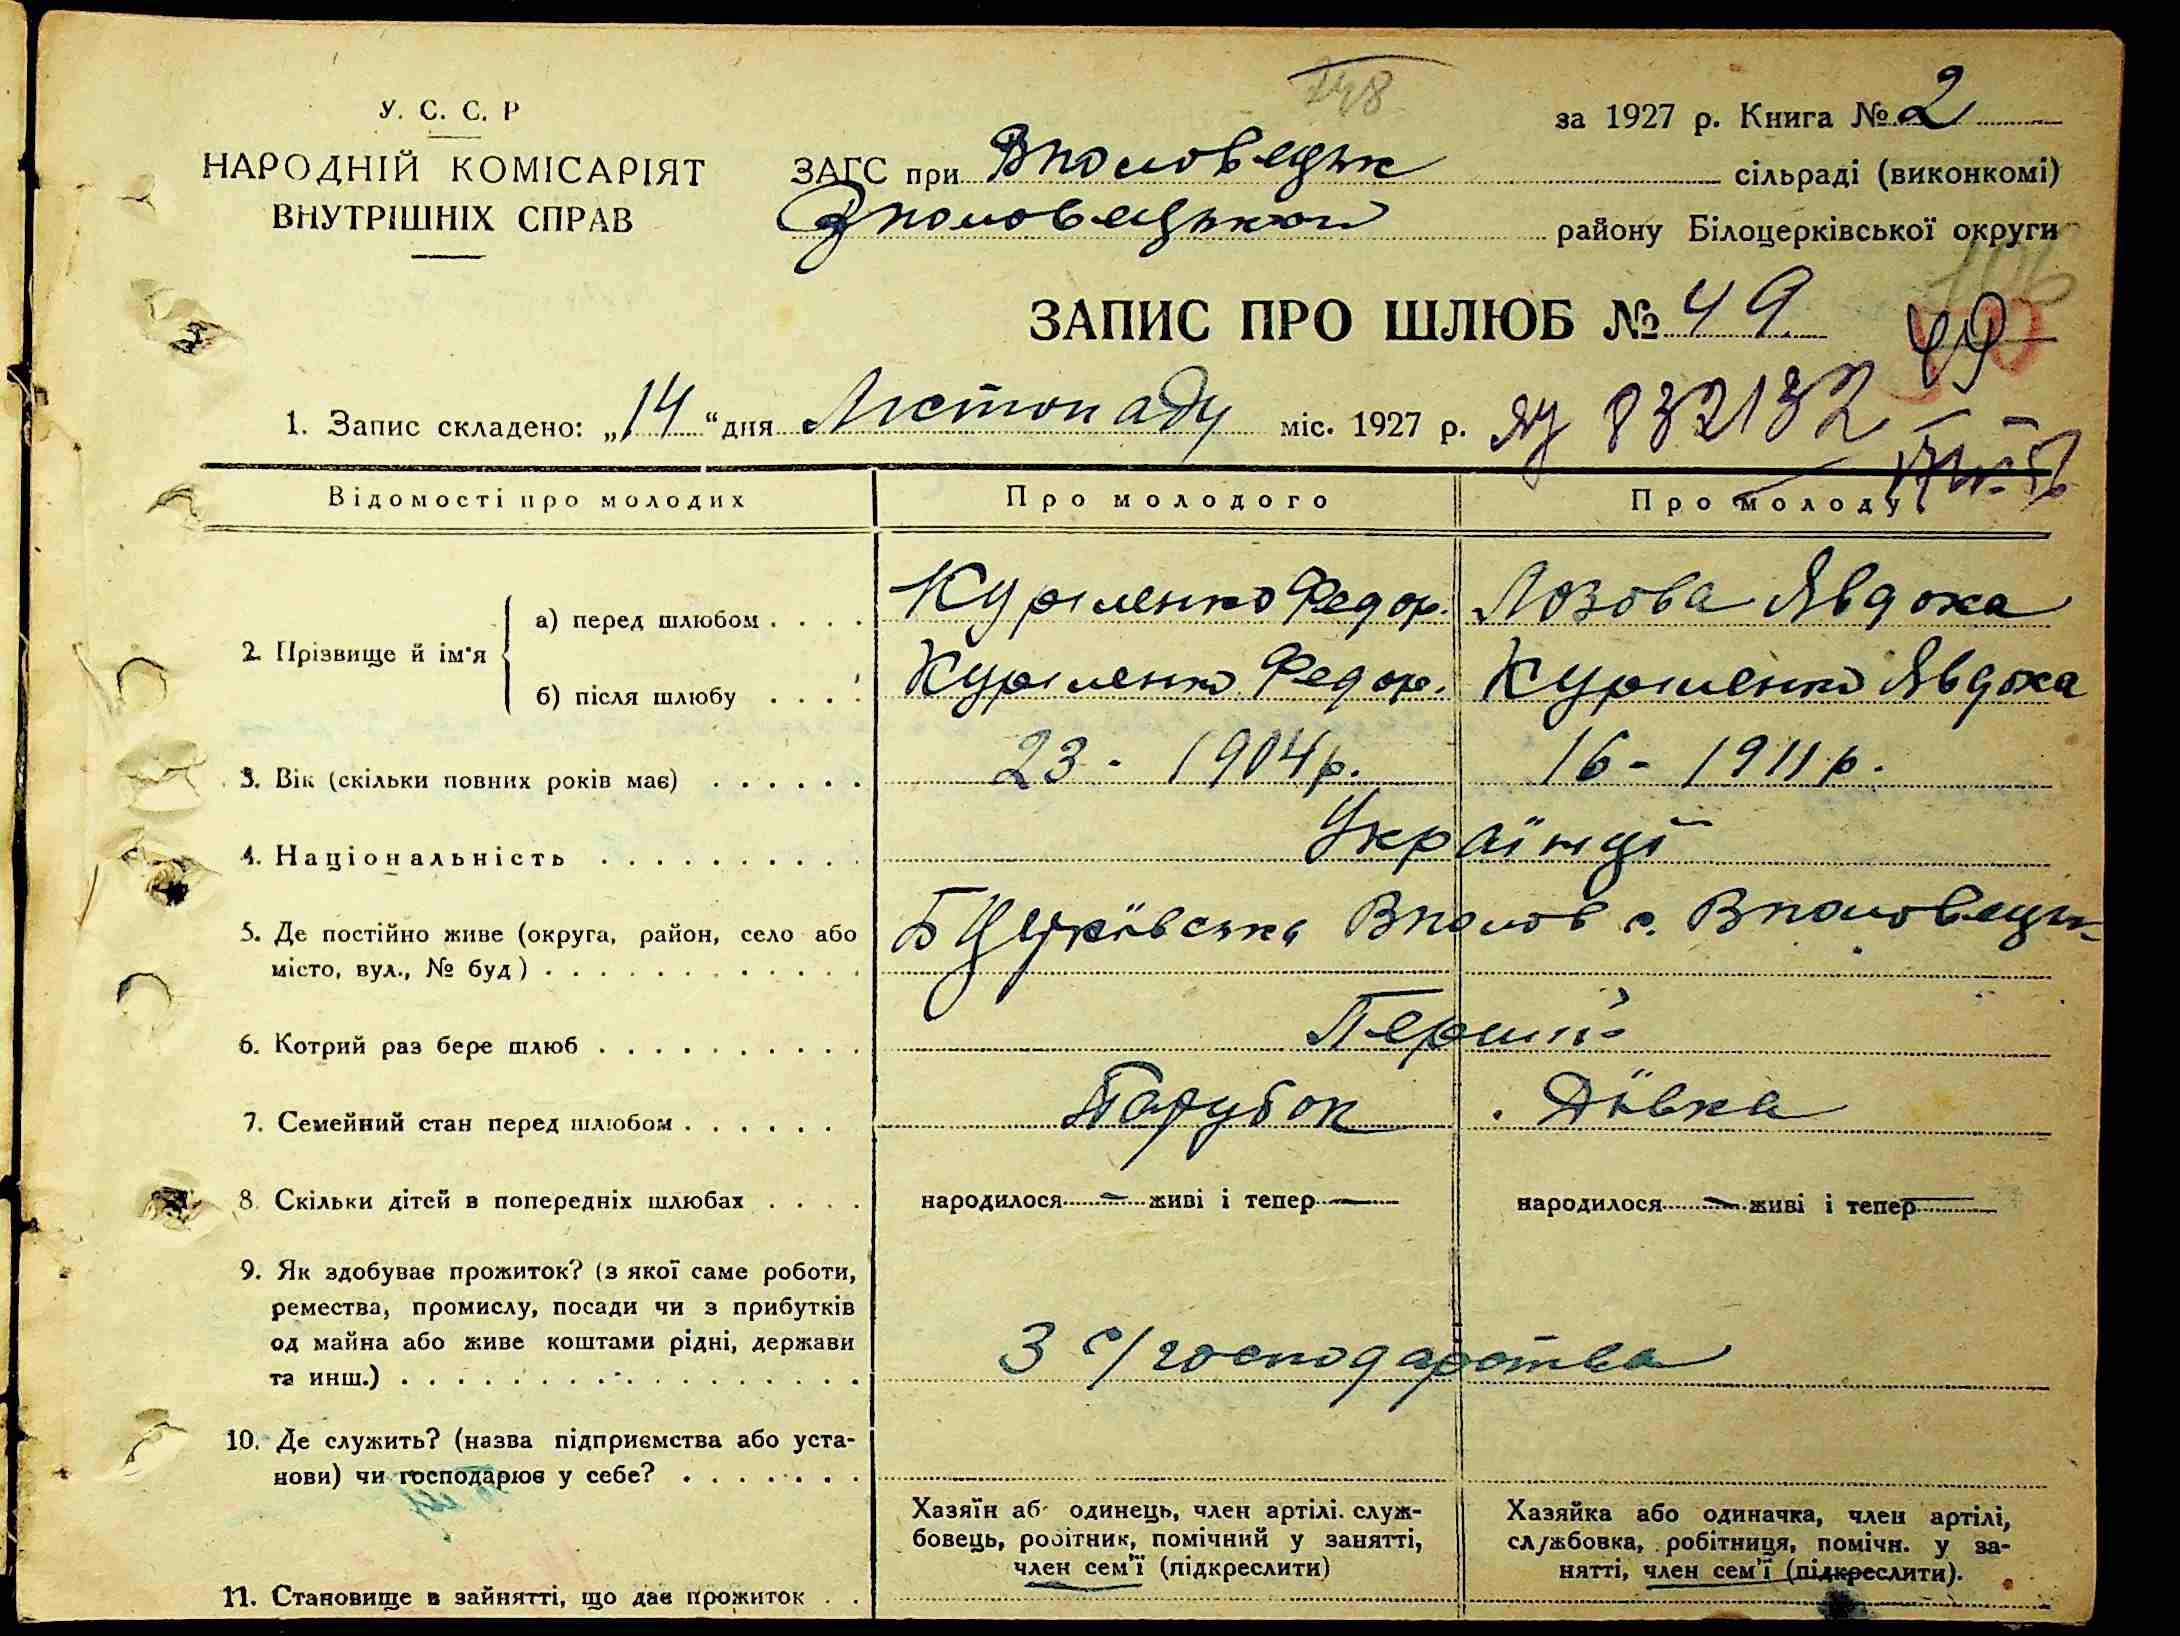 248
У. С. С. Р
НАРОДНІЙ КОМІСАРІЯТ
ВНУТРІШНІХ СПРАВ
за 1927 р. Книга № 2
ЗАГС при Вполовецьк сільраді (виконкомі)
Вполовецького району Білоцерківської округи
ЗАПИС ПРО ШЛЮБ № 49
49
1. Запис складено: „14“ дня Листопаду міс. 1927 р.
832132
Відомості про молодих
Про молодого
Про молоду
2. Прізвище й ім'я
а) перед шлюбом
Куриленко Федор.
Лозова Явдоха
б) після шлюбу
Куриленко Федор.
Куриленко Явдоха
3. Вік (скільки повних років має)
23 - 1904 р.
16 - 1911 р.
4. Національність
Українці
5. Де постійно живе (округа, район, село або
місто, вул., № буд)
БЦерківська Вполов с. Вполовецьк
6. Котрий раз бере шлюб
Перший
7. Семейний стан перед шлюбом
Парубок
Дівка
8. Скільки дітей в попередніх шлюбах
народилося — живі і тепер —
народилося — живі і тепер —
9. Як здобуває прожиток? (з якої саме роботи,
ремества, промислу, посади чи з прибутків
од майна або живе коштами рідні, держави
та инш.)
З с/господарства
10. Де служить? (назва підприємства або уста-
нови) чи господарює у себе?
11. Становище в зайнятті, що дає прожиток
Хазяїн або одинець, член артілі, служ-
бовець, робітник, помічний у занятті,
член сем'ї (підкреслити)
Хазяйка або одиначка, член артілі,
службовка, робітниця, помічн. у за-
нятті, член сем'ї (підкреслити).